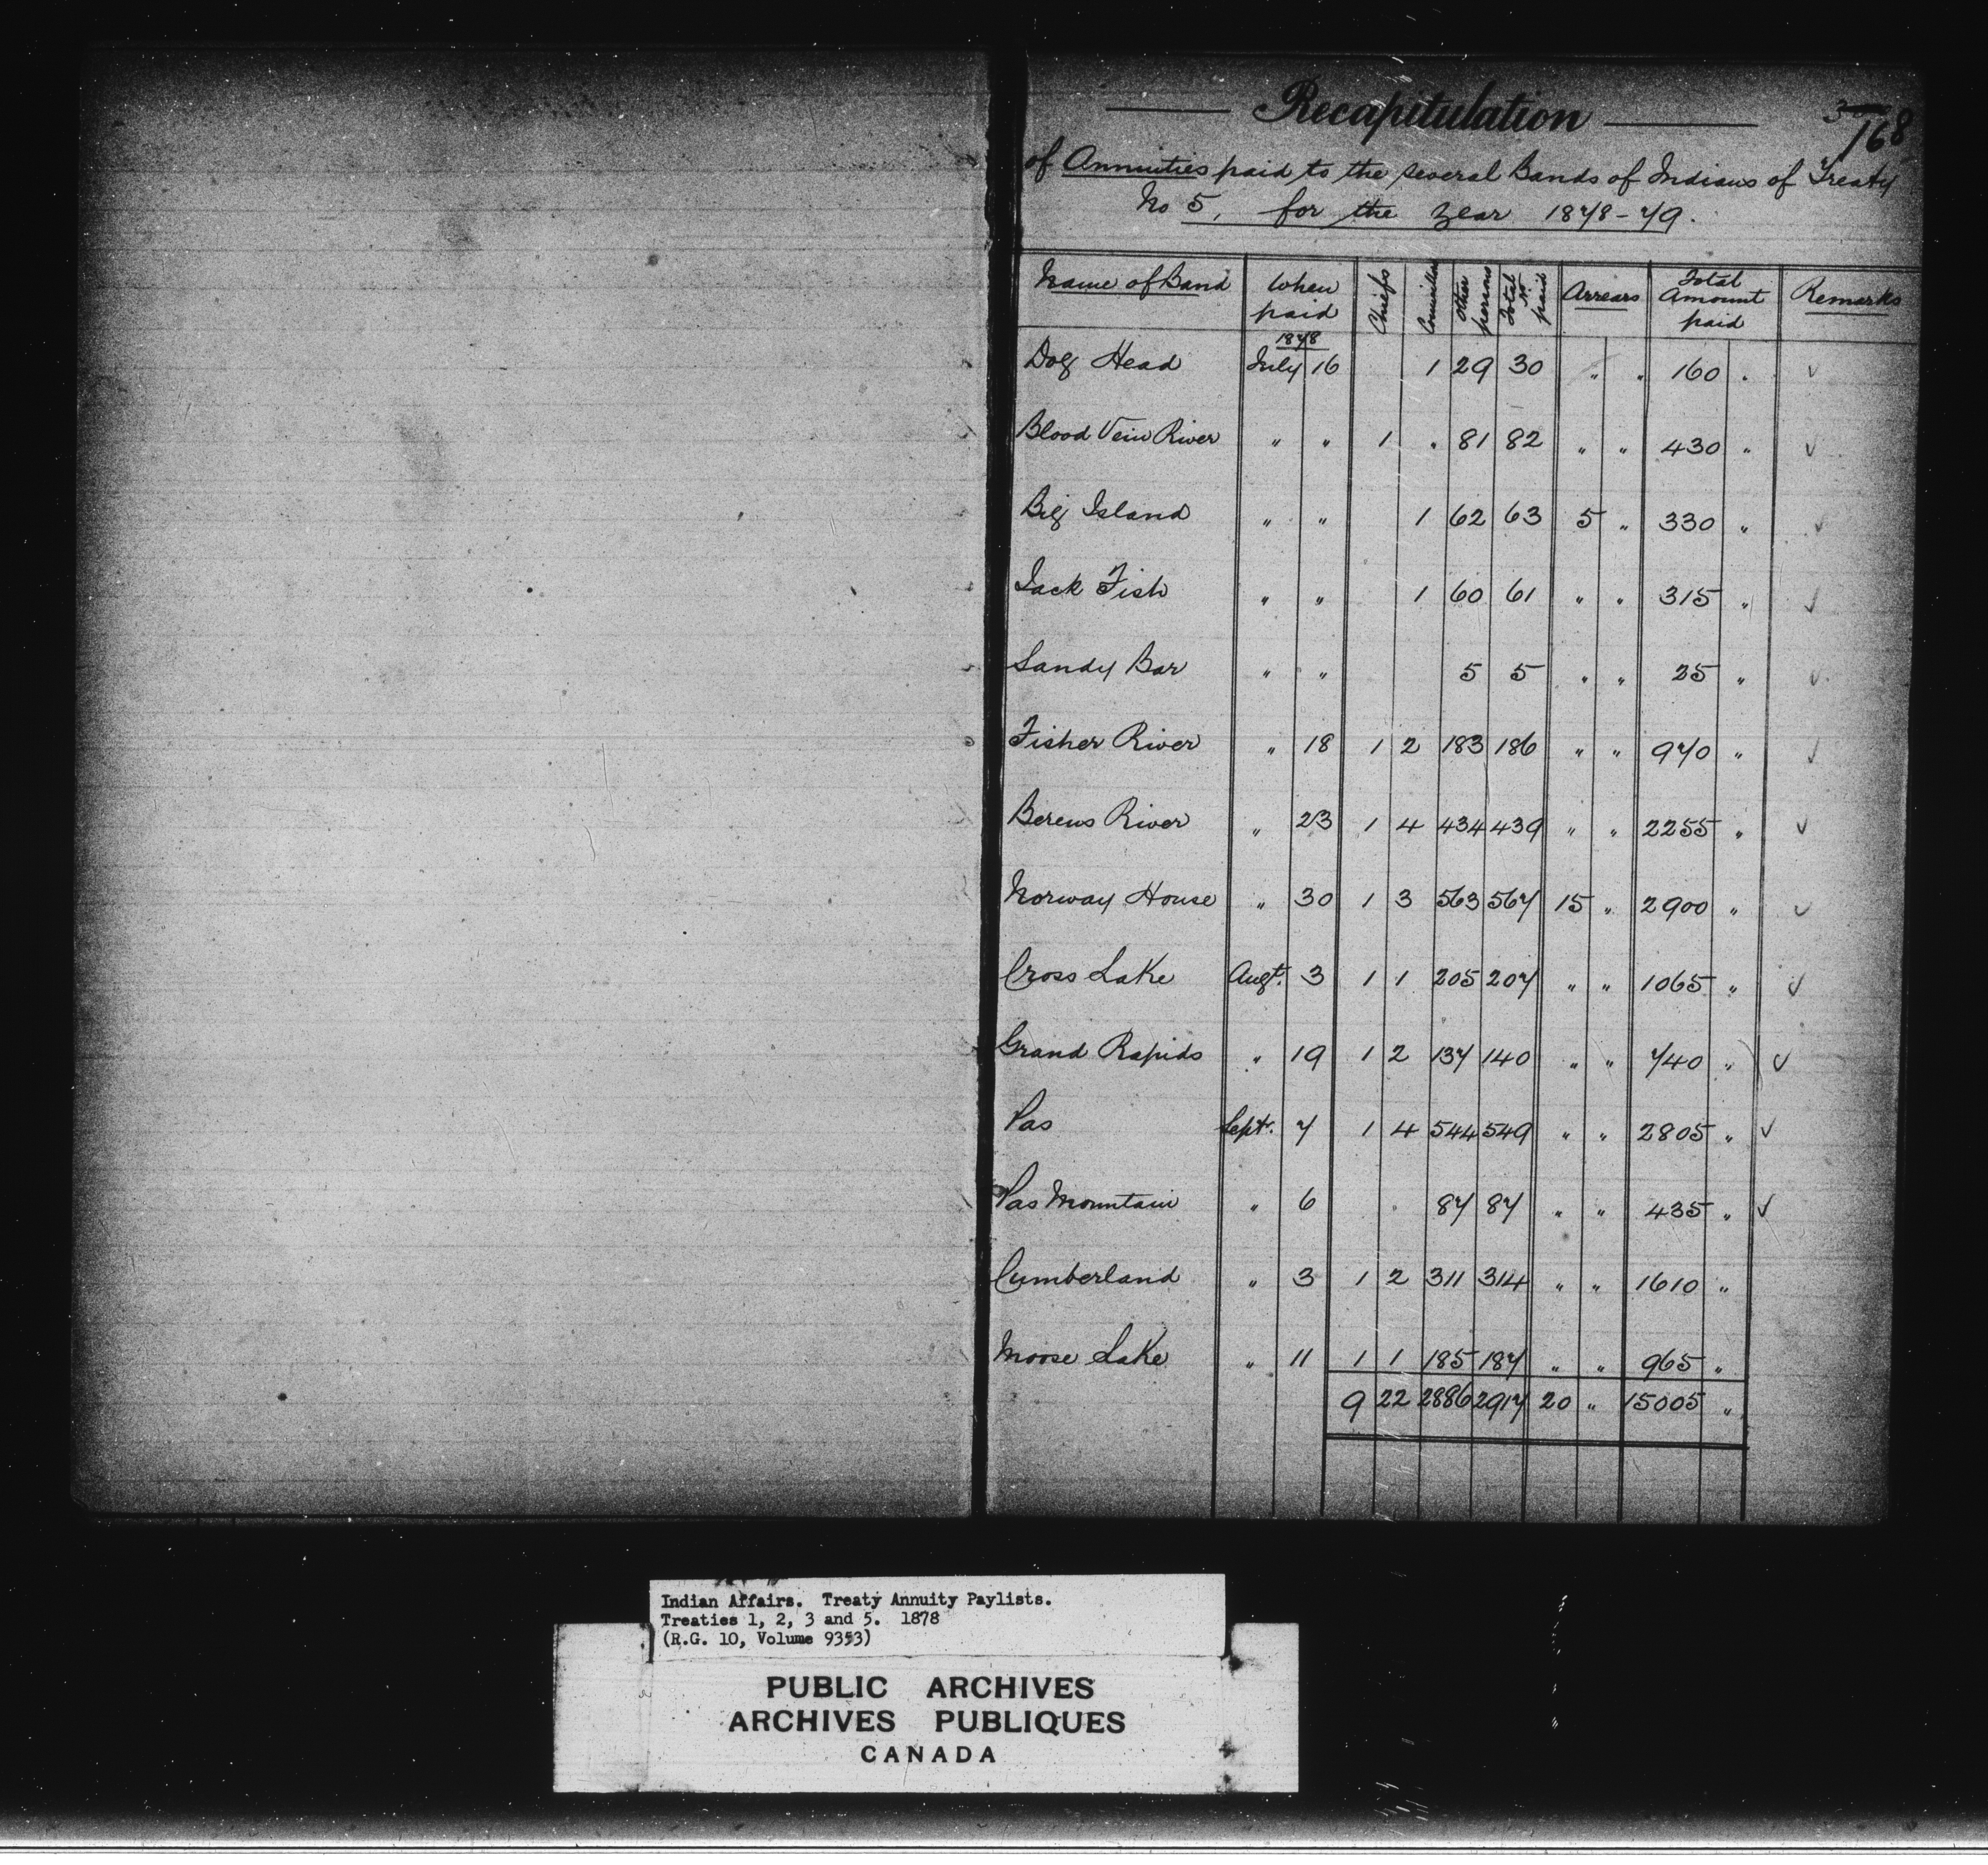 Recapitulation
168
of Annuities paid to the several Bands of Indians of Treaty
No 5, for the year 1878-79.
Name of Band When paid Chiefs Councillors Other persons Total No paid Arrears Total Amount paid Remarks
1878
Dog Head July 16 1 29 30 " " 160 " ✓
Blood Vein River " " 1 " 81 82 " " 430 " ✓
Big Island " " 1 62 63 5 " 330 " ✓
Jack Fish " " 1 60 61 " " 315 " ✓
Sandy Bar " " 5 5 " " 25 " ✓
Fisher River " 18 1 2 183 186 " " 970 " ✓
Berens River " 23 1 4 434 439 " " 2255 " ✓
Norway House " 30 1 3 563 567 15 " 2900 " ✓
Cross Lake Augt. 3 1 1 205 207 " " 1065 " ✓
Grand Rapids " 19 1 2 137 140 " " 740 " ✓
Pas Sept. 7 1 4 544 549 " " 2805 " ✓
Pas Mountain " 6 87 87 " " 435 " ✓
Cumberland " 3 1 2 311 314 " " 1610 "
Moose Lake " 11 1 1 185 187 " " 965 "
9 22 2886 2917 20 " 15005 "
Indian Affairs. Treaty Annuity Paylists.
Treaties 1, 2, 3 and 5. 1878
(R.G. 10, Volume 9353)
PUBLIC ARCHIVES
ARCHIVES PUBLIQUES
CANADA